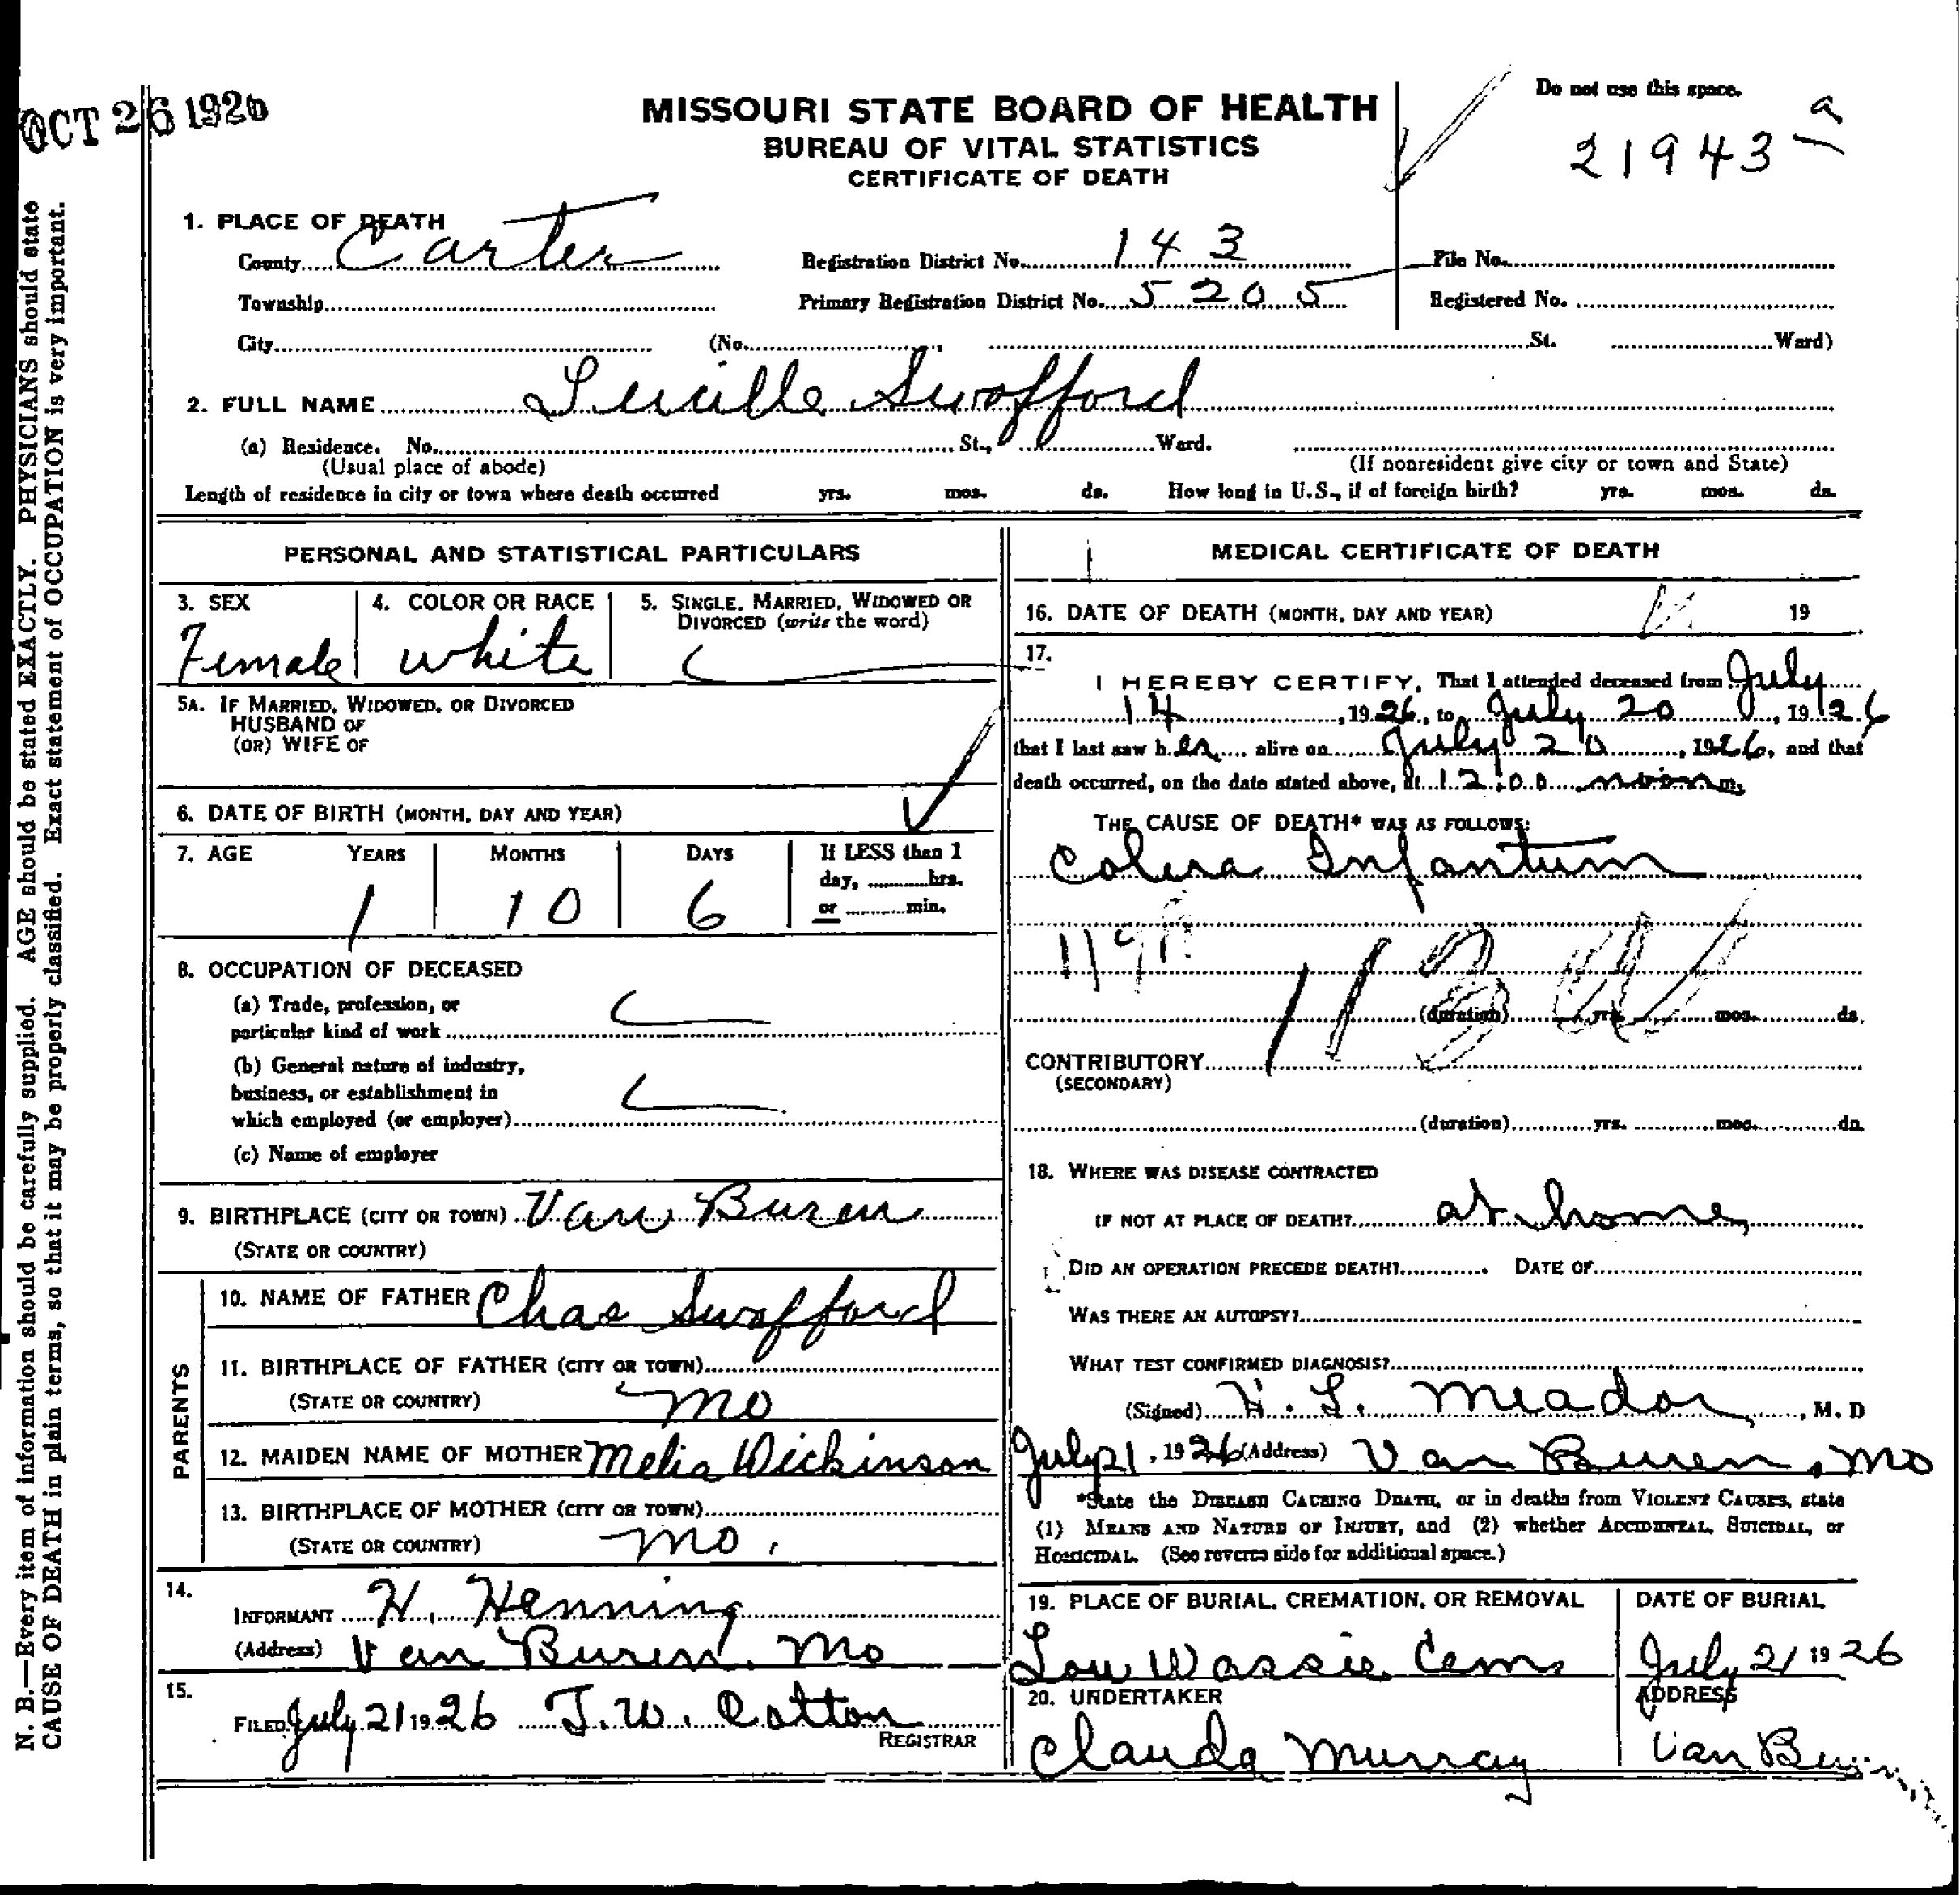 OCT 26 1926
MISSOURI STATE BOARD OF HEALTH
BUREAU OF VITAL STATISTICS
CERTIFICATE OF DEATH
Do not use this space.
21943-a
1. PLACE OF DEATH
County Carter Registration District No. 143 File No.
Township Primary Registration District No. 5205 Registered No.
City (No. , St. Ward)
2. FULL NAME Lucille Swofford
(a) Residence. No. St., Ward.
(Usual place of abode) (If nonresident give city or town and State)
Length of residence in city or town where death occurred yrs. mos. ds. How long in U.S., if of foreign birth? yrs. mos. ds.
PERSONAL AND STATISTICAL PARTICULARS
3. SEX 4. COLOR OR RACE 5. SINGLE, MARRIED, WIDOWED OR
DIVORCED (write the word)
Female white
5A. IF MARRIED, WIDOWED, OR DIVORCED
HUSBAND OF
(OR) WIFE OF
6. DATE OF BIRTH (MONTH, DAY AND YEAR)
7. AGE YEARS MONTHS DAYS If LESS than 1
day, hrs.
or min.
1 10 6
8. OCCUPATION OF DECEASED
(a) Trade, profession, or
particular kind of work
(b) General nature of industry,
business, or establishment in
which employed (or employer)
(c) Name of employer
9. BIRTHPLACE (CITY OR TOWN) Van Buren
(STATE OR COUNTRY)
PARENTS
10. NAME OF FATHER Chas Swofford
11. BIRTHPLACE OF FATHER (CITY OR TOWN)
(STATE OR COUNTRY) Mo
12. MAIDEN NAME OF MOTHER Melia Dickinson
13. BIRTHPLACE OF MOTHER (CITY OR TOWN)
(STATE OR COUNTRY) Mo.
14.
INFORMANT H. Henning
(Address) Van Buren, Mo
15.
FILED July 21 1926 T.W. Cotton
REGISTRAR
MEDICAL CERTIFICATE OF DEATH
16. DATE OF DEATH (MONTH, DAY AND YEAR) 19
17.
I HEREBY CERTIFY, That I attended deceased from July
14, 1926, to July 20, 1926
that I last saw her alive on July 20, 1926, and that
death occurred, on the date stated above, at 12:00 noon m.
THE CAUSE OF DEATH* WAS AS FOLLOWS:
Colera Infantum
(duration) yrs. mos. ds.
CONTRIBUTORY
(SECONDARY)
(duration) yrs. mos. ds.
18. WHERE WAS DISEASE CONTRACTED
IF NOT AT PLACE OF DEATH? at home
DID AN OPERATION PRECEDE DEATH? DATE OF
WAS THERE AN AUTOPSY?
WHAT TEST CONFIRMED DIAGNOSIS?
(Signed) H. L. Meador, M. D
July 21, 1926 (Address) Van Buren, Mo
*State the DISEASE CAUSING DEATH, or in deaths from VIOLENT CAUSES, state
(1) MEANS AND NATURE OF INJURY, and (2) whether ACCIDENTAL, SUICIDAL, or
HOMICIDAL. (See reverse side for additional space.)
19. PLACE OF BURIAL, CREMATION, OR REMOVAL DATE OF BURIAL
Low Wassie Cem. July 21 1926
20. UNDERTAKER ADDRESS
Claude Murray Van Buren
N. B.—Every item of information should be carefully supplied. AGE should be stated EXACTLY. PHYSICIANS should state
CAUSE OF DEATH in plain terms, so that it may be properly classified. Exact statement of OCCUPATION is very important.